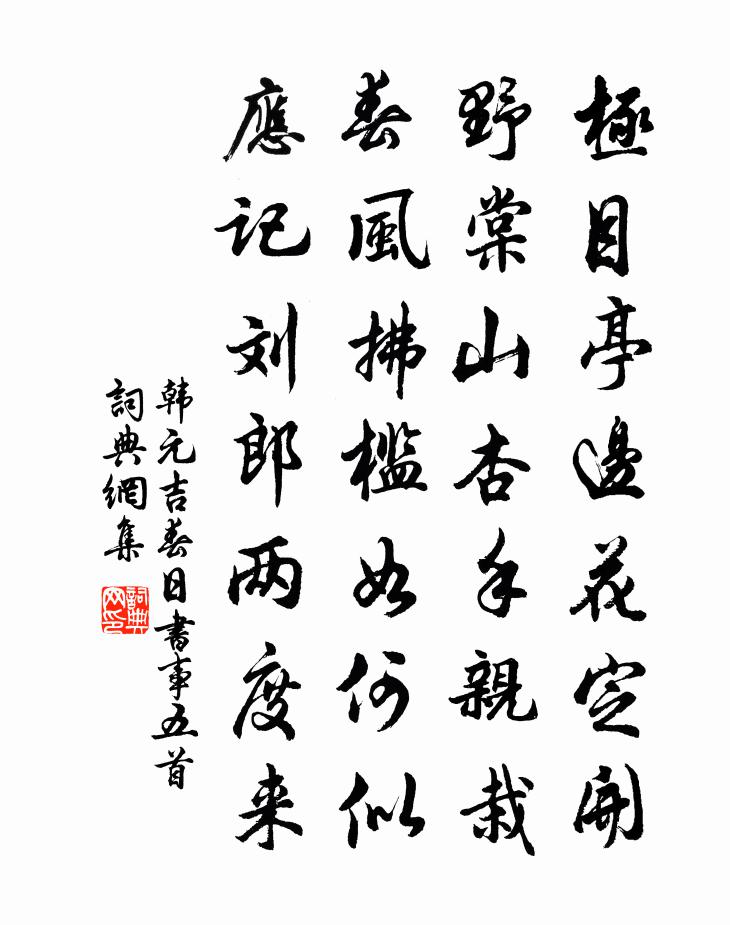 極目亭邊花定開
野棠山杏手親栽
春風拂檻如何似
應記刘郎两度来
韩元吉春日書事五首
詞典網集
詞典网印